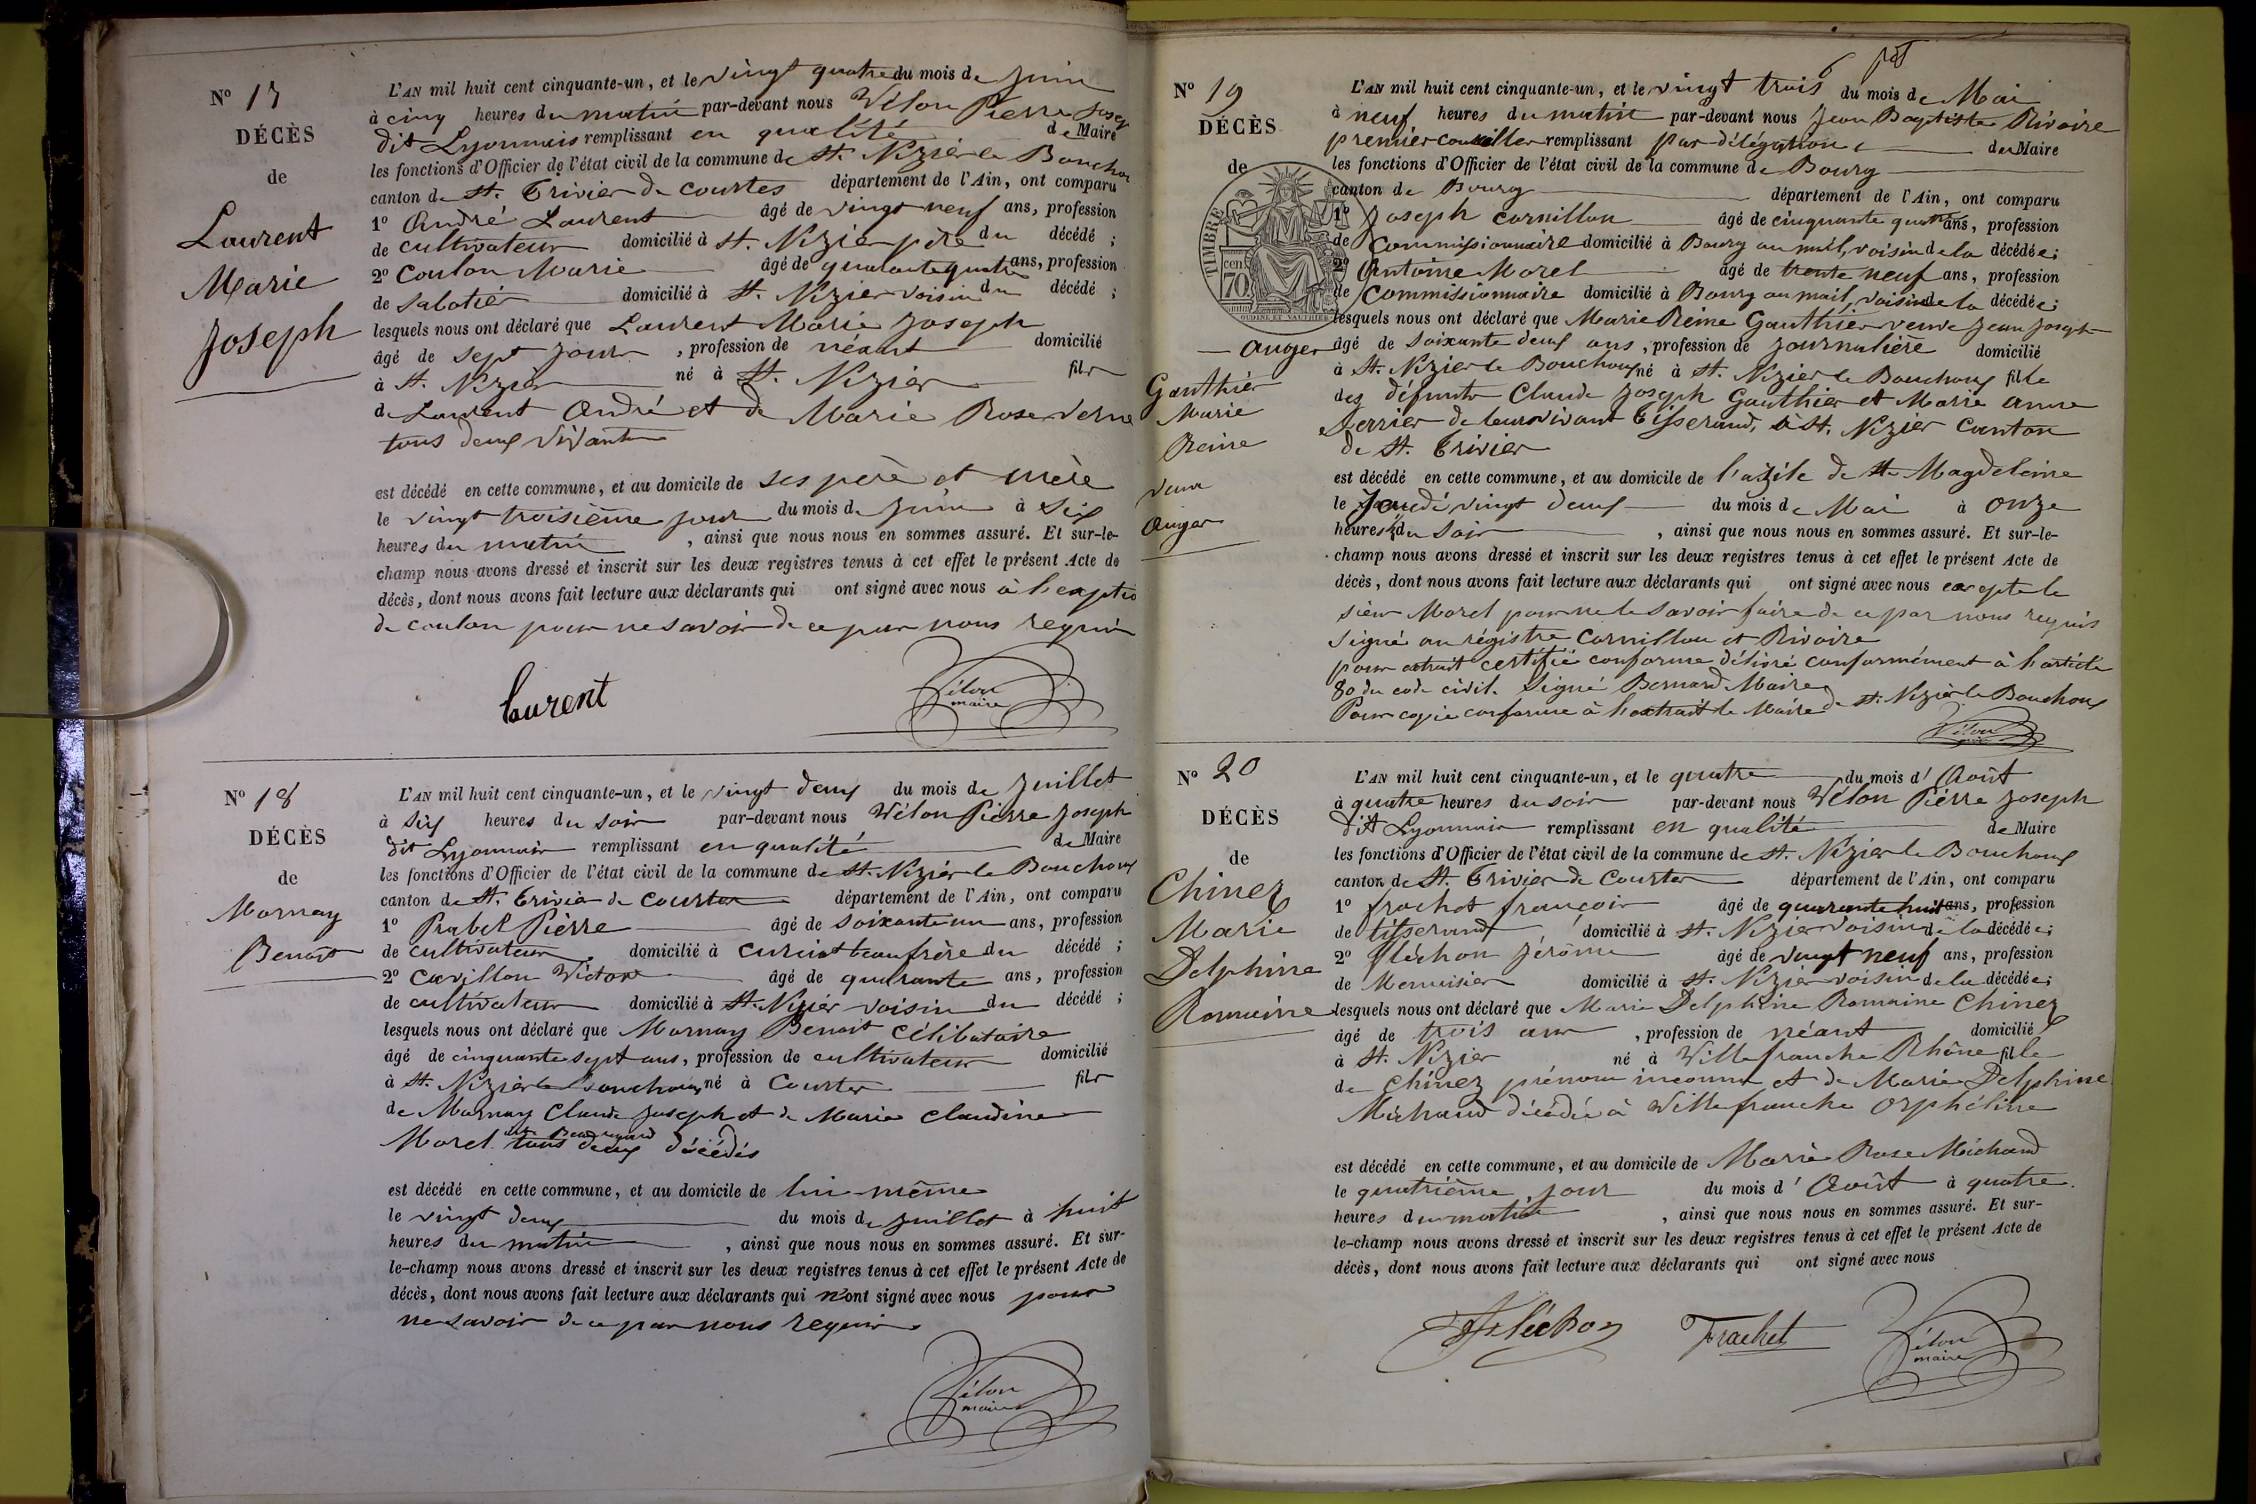 N° 17
DÉCÈS
de
Laurent
Marie
Joseph
L'AN mil huit cent cinquante-un, et le vingt quatre du mois de Juin
à cinq heures du matin par-devant nous Vélon Pierre Josep
dit Lyonnais remplissant en qualité de Maire
les fonctions d'Officier de l'état civil de la commune de St. Nizier le Bouchou
canton de St. Trivier de Courtes département de l'Ain, ont comparu
1° André Laurent âgé de vingt neuf ans, profession
de cultivateur domicilié à St. Nizier père du décédé ;
2° Coulon Marie âgé de quarante quatre ans, profession
de sabotier domicilié à St. Nizier voisin du décédé ;
lesquels nous ont déclaré que Laurent Marie Joseph
âgé de sept jours , profession de néant domicilié
à St. Nizier né à St. Nizier fils
de Laurent André et de Marie Rose Verne
tous deux vivants
est décédé en cette commune, et au domicile de ses père et mère
le vingt troisième jour du mois de Juin à six
heures du matin , ainsi que nous nous en sommes assuré. Et sur-le-
champ nous avons dressé et inscrit sur les deux registres tenus à cet effet le présent Acte de
décès, dont nous avons fait lecture aux déclarants qui ont signé avec nous à l'exeptio
de Coulon pour ne savoir de ce par nous requis
Laurent
Vélon
maire
N° 18
DÉCÈS
de
Mornay
Benoit
L'AN mil huit cent cinquante-un, et le vingt deux du mois de Juillet
à six heures du soir par-devant nous Vélon Pierre Joseph
dit Lyonnais remplissant en qualité de Maire
les fonctions d'Officier de l'état civil de la commune de St. Nizier le Bouchoux
canton de St. Trivier de Courtes département de l'Ain, ont comparu
1° Prabel Pierre âgé de soixante un ans, profession
de cultivateur domicilié à Curciat beaufrère du décédé ;
2° Cavillon Victor âgé de quarante ans, profession
de cultivateur domicilié à St. Nizier voisin du décédé ;
lesquels nous ont déclaré que Mornay Benoit célibataire
âgé de cinquante sept ans, profession de cultivateur domicilié
à St. Nizier le Bouchoux né à Courtes fils
de Mornay Claude Joseph et de Marie Claudine
Morel dit Beauregard tous deux décédés
est décédé en cette commune, et au domicile de lui même
le vingt deux du mois de Juillet à huit
heures du matin , ainsi que nous nous en sommes assuré. Et sur-
le-champ nous avons dressé et inscrit sur les deux registres tenus à cet effet le présent Acte de
décès, dont nous avons fait lecture aux déclarants qui n'ont signé avec nous pour
ne savoir de ce par nous requis
Vélon
maire
N° 19
DÉCÈS
de
Auger
Gauthier
Marie
Reine
veuve
Auger
TIMBRE
cen.
70
OUDINE ET VAUTHIER
L'AN mil huit cent cinquante-un, et le vingt trois du mois de Mai
à neuf heures du matin par-devant nous Jean Baptiste Rivoire
premier conseiller remplissant par délégation du Maire
les fonctions d'Officier de l'état civil de la commune de Bourg
canton de Bourg département de l'Ain, ont comparu
1° Joseph Cornillon âgé de cinquante quatre ans, profession
de Commissionnaire domicilié à Bourg au mail, voisin de la décédée ;
2° Antoine Morel âgé de trente neuf ans, profession
de Commissionnaire domicilié à Bourg au mail, voisin de la décédée ;
lesquels nous ont déclaré que Marie Reine Gauthier veuve Jean Joseph
âgé de soixante deux ans, profession de Journalière domicilié
à St. Nizier le Bouchoux né à St. Nizier le Bouchoux fille
des défunts Claude Joseph Gauthier et Marie Anne
Perrier de leur vivant Tisserands, à St. Nizier Canton
de St. Trivier
est décédé en cette commune, et au domicile de l'azile de Ste Magdeleine
le Jeudi vingt deux du mois de Mai à onze
heures du soir , ainsi que nous nous en sommes assuré. Et sur-le-
champ nous avons dressé et inscrit sur les deux registres tenus à cet effet le présent Acte de
décès, dont nous avons fait lecture aux déclarants qui ont signé avec nous excepté le
sieur Morel pour ne le savoir faire de ce par nous requis
Signé au régistre Cornillon et Rivoire
pour extrait certifié conforme délivré conformément à l'article
80 du code civil. Signé Bernard Maire
Pour copie conforme à l'extrait le Maire de St. Nizier le Bouchoux
Vélon
N° 20
DÉCÈS
de
Chinez
Marie
Delphine
Romaine
L'AN mil huit cent cinquante-un, et le quatre du mois d'Août
à quatre heures du soir par-devant nous Vélon Pierre Joseph
dit Lyonnais remplissant en qualité de Maire
les fonctions d'Officier de l'état civil de la commune de St. Nizier le Bouchoux
canton de St. Trivier de Courtes département de l'Ain, ont comparu
1° frachet françois âgé de quarante huit ans, profession
de tisserand domicilié à St. Nizier voisin de la décédée ;
2° fléchon Jérôme âgé de vingt neuf ans, profession
de Menuisier domicilié à St. Nizier voisin de la décédée ;
lesquels nous ont déclaré que Marie Delphine Romaine Chinez
âgé de trois ans , profession de néant domicilié
à St. Nizier né à Villefranche Rhône fille
de Chinez prénom inconnu et de Marie Delphine
Michaud décédée à Villefranche Orphéline
est décédé en cette commune, et au domicile de Marie Rose Michaud
le quatrième jour du mois d'Août à quatre
heures du matin , ainsi que nous nous en sommes assuré. Et sur-
le-champ nous avons dressé et inscrit sur les deux registres tenus à cet effet le présent Acte de
décès, dont nous avons fait lecture aux déclarants qui ont signé avec nous
Fléchon
Frachet
Vélon
maire